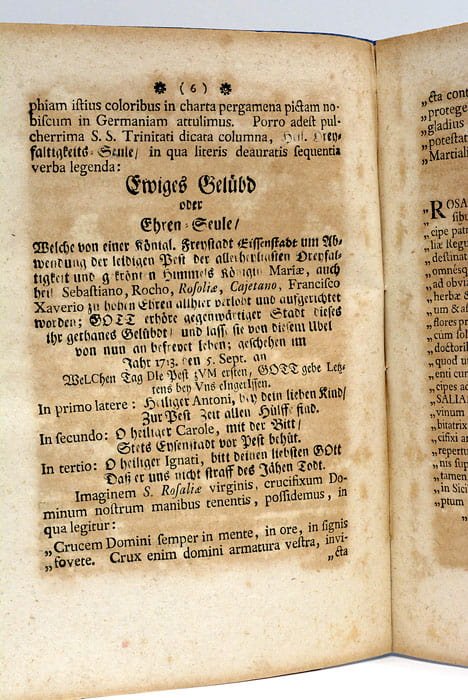 ❋ ( 6 ) ❋
phiam istius coloribus in charta pergamena pictam no-
biscum in Germaniam attulimus. Porro adest pul-
cherrima S. S. Trinitati dicata columna, Heil. Drey-
faltigkeits-Seule/ in qua literis deauratis sequentia
verba legenda:
Ewiges Gelübd
oder
Ehren-Seule/
Welche von einer Königl. Freystadt Eissenstadt um Ab-
wendung der leidigen Pest der allerheiligsten Dreyfal-
tigkeit und gekrönten Himmels Königin Mariæ, auch
heil. Sebastiano, Rocho, Rosoliæ, Cajetano, Francisco
Xaverio zu hohen Ehren allhier verlobt und aufgerichtet
worden; GOTT erhöre gegenwärtiger Stadt dieses
ihr gethanes Gelübdt/ und lasse sie von diesem Ubel
von nun an befreyet leben; geschehen im
Jahr 1713. den 5. Sept. an
WeLChen Tag DIe Pest ZVM ersten, GOTT gebe Letz-
tens bey Vns eIngerIssen.
In primo latere: Heiliger Antoni, bey dein lieben Kind/
Zur Pest Zeit allen Hülffe find.
In secundo: O heiliger Carole, mit der Bitt/
Stets Eysenstadt vor Pest behüt.
In tertio: O heiliger Ignati, bitt deinen liebsten GOtt
Daß er uns nicht straff des Jähen Todt.
Imaginem S. Rosaliæ virginis, crucifixum Do-
minum nostrum manibus tenentis, possidemus, in
qua legitur:
„Crucem Domini semper in mente, in ore, in signis
„fovete. Crux enim domini armatura vestra, invi-
„cta
„cta cont
„protege
„gladius
„potestat
„Martiali
„ROSA
sibu
„cipe patri
„liæ Regn
„destinat
„omnesq
„ad obvia
„herbæ, a
„um & af
„flores pr
„cum sol
„doctoril
„quod un
„enti cun
„cipes ac
„SALIA
„vimus
„buatrix
„cifixi ar
„repertu
„nis sup
„tamen
„in Sici
„ptum